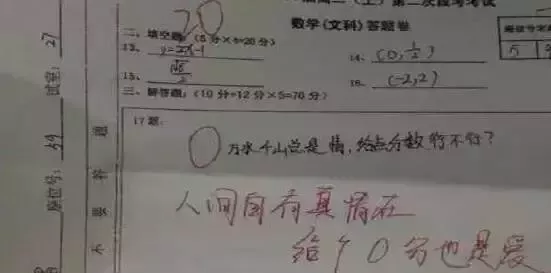 (上)第二次段考考试
数学(文科)答题卷
20
二、填空题:(5分×4=20分)
13. y=2x-1
14. (0,1/2)
15.
16. (-2,2)
三、解答题:(10分+12分×5=70分)
17题:
0
万水千山总是情,给点分数行不行?
人间自有真情在
给个0分也是爱
试室: 27
座位号: 59
题
答
要
不
5